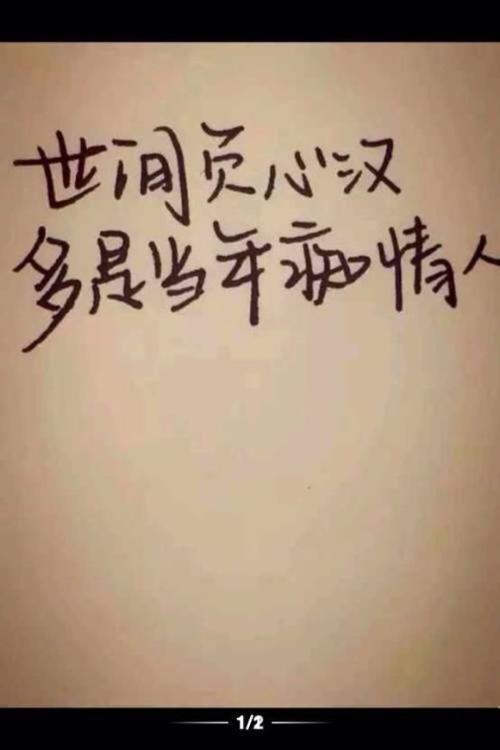 世间负心汉
多是当年痴情人
1/2